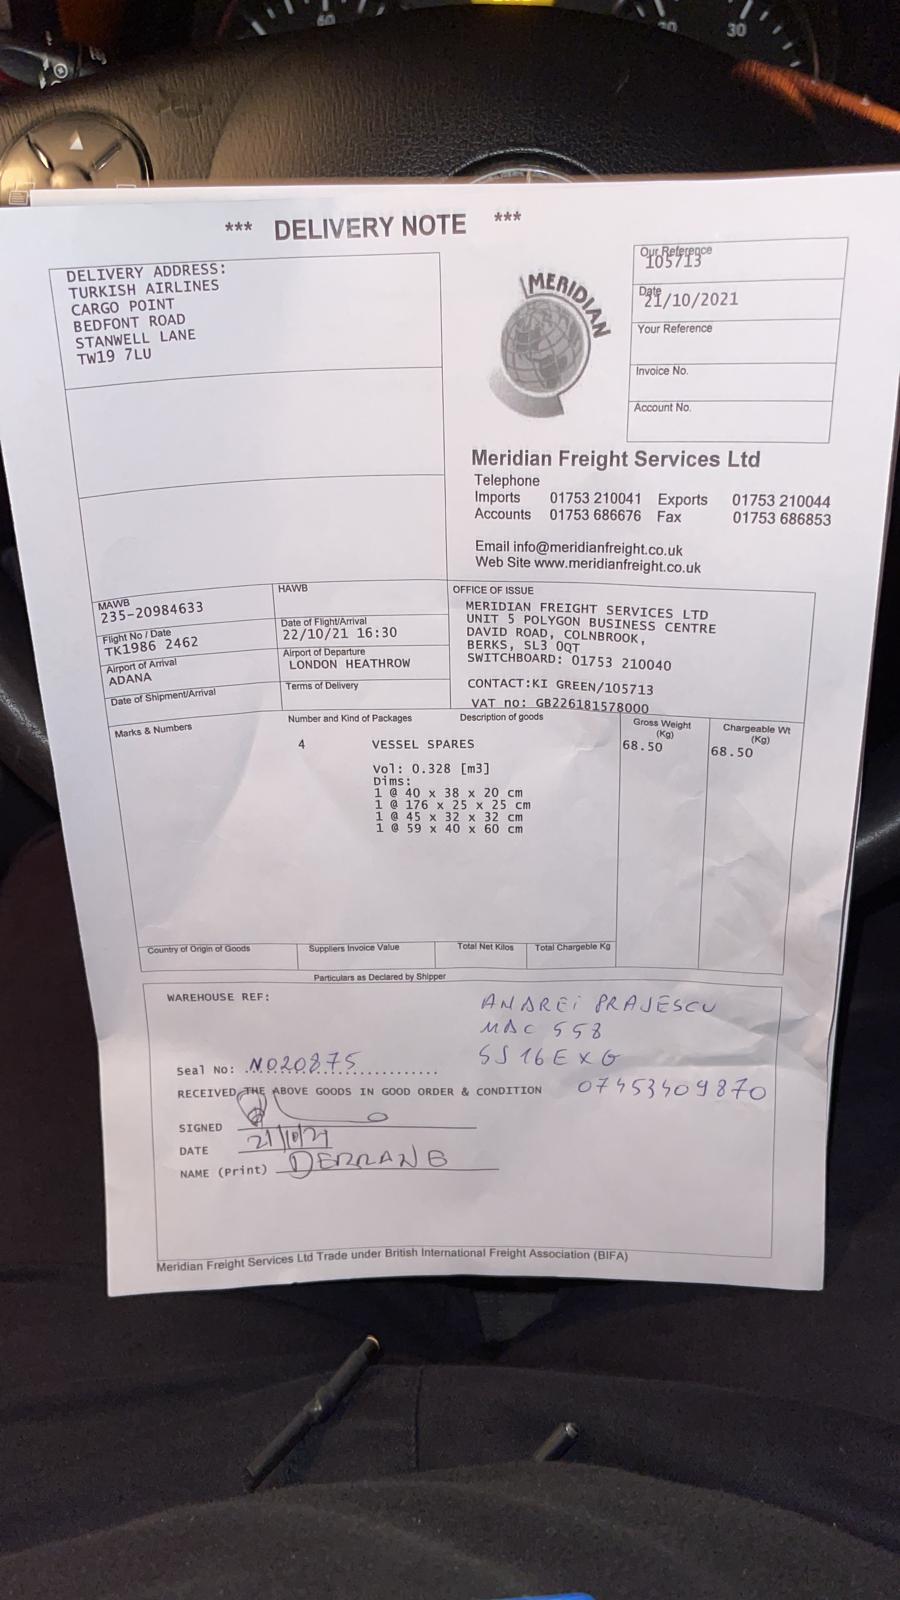 *** DELIVERY NOTE ***
DELIVERY ADDRESS:
TURKISH AIRLINES
CARGO POINT
BEDFONT ROAD
STANWELL LANE
TW19 7LU
MERIDIAN
Our Reference
105713
Date
21/10/2021
Your Reference
Invoice No.
Account No.
Meridian Freight Services Ltd
Telephone
Imports 01753 210041 Exports 01753 210044
Accounts 01753 686676 Fax 01753 686853
Email info@meridianfreight.co.uk
Web Site www.meridianfreight.co.uk
MAWB
235-20984633
HAWB
Flight No / Date
TK1986 2462
Date of Flight/Arrival
22/10/21 16:30
Airport of Arrival
ADANA
Airport of Departure
LONDON HEATHROW
Date of Shipment/Arrival
Terms of Delivery
OFFICE OF ISSUE
MERIDIAN FREIGHT SERVICES LTD
UNIT 5 POLYGON BUSINESS CENTRE
DAVID ROAD, COLNBROOK,
BERKS, SL3 0QT
SWITCHBOARD: 01753 210040
CONTACT:KI GREEN/105713
VAT no: GB226181578000
Marks & Numbers Number and Kind of Packages Description of goods Gross Weight (Kg) Chargeable Wt (Kg)
4 VESSEL SPARES 68.50 68.50
Vol: 0.328 [m3]
Dims:
1 @ 40 x 38 x 20 cm
1 @ 176 x 25 x 25 cm
1 @ 45 x 32 x 32 cm
1 @ 59 x 40 x 60 cm
Country of Origin of Goods Suppliers Invoice Value Total Net Kilos Total Chargeable Kg
Particulars as Declared by Shipper
WAREHOUSE REF:
ANDREI PRAJESCU
MAC 558
SJ16EXG
07453409870
Seal No: N020875
RECEIVED THE ABOVE GOODS IN GOOD ORDER & CONDITION
SIGNED
DATE 21/10/21
NAME (Print)
Meridian Freight Services Ltd Trade under British International Freight Association (BIFA)